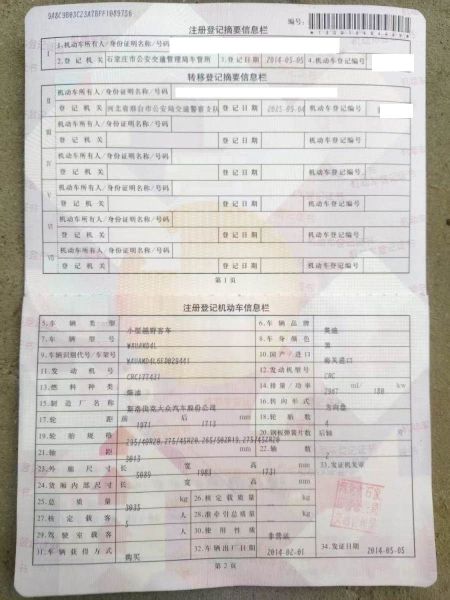 9A8C9B03C23A7BFF1089756
注册登记摘要信息栏
编号:
I
1.机动车所有人/身份证明名称/号码
2.登记机关 石家庄市公安交通管理局车管所 3.登记日期 2014-05-05 4.机动车登记编号
转移登记摘要信息栏
II
机动车所有人/身份证明名称/号码
登记机关 河北省唐山市公安局交通警察支队 登记日期 2015-05-04 机动车登记编号
III
机动车所有人/身份证明名称/号码
登记机关 登记日期 机动车登记编号
IV
机动车所有人/身份证明名称/号码
登记机关 登记日期 机动车登记编号
V
机动车所有人/身份证明名称/号码
登记机关 登记日期 机动车登记编号
VI
机动车所有人/身份证明名称/号码
登记机关 登记日期 机动车登记编号
VII
机动车所有人/身份证明名称/号码
登记机关 登记日期 机动车登记编号
第1页
注册登记机动车信息栏
5.车辆类型 小型越野客车 6.车辆品牌 奥迪
7.车辆型号 8.车身颜色 黑
9.车辆识别代号/车架号 10.国产/进口 海关进口
11.发动机号 12.发动机型号 CRC
13.燃料种类 柴油 14.排量/功率 2967 ml 180 kw
15.制造厂名称 斯洛伐克大众汽车股份公司 16.转向形式 方向盘
17.轮距 前 1971 后 1713 mm 18.轮胎数 4
19.轮胎规格 20.钢板弹簧片数 后轴
21.轴距 mm 22.轴数 2
23.外廓尺寸 长 5089 宽 1983 高 1737 mm 33.发证机关章
24.货厢内部尺寸 长 宽 高 mm
25.总质量 kg 26.核定载质量 kg
27.核定载客 5 人 28.准牵引总质量 kg
29.驾驶室载客 人 30.使用性质 非营运
31.车辆获得方式 购买 32.车辆出厂日期 2014-02-01 34.发证日期 2014-05-05
第2页